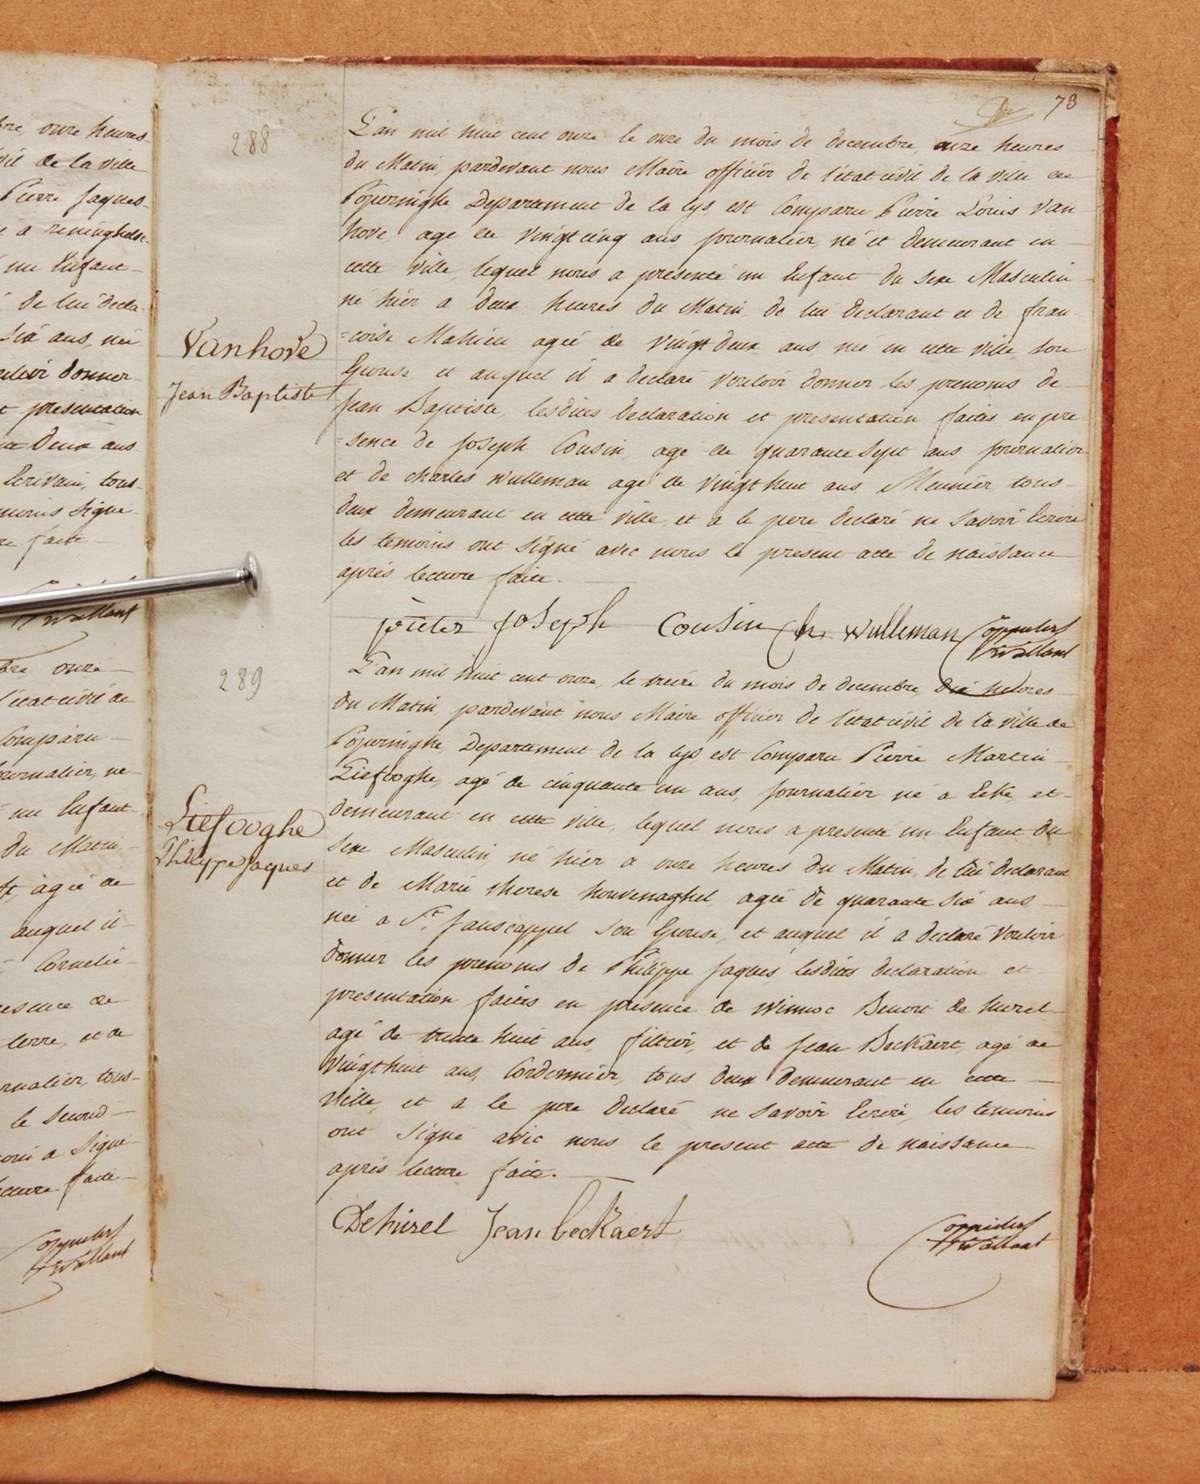 bre onze heures
vil de la ville
Pierre Jaques
né a reninghelst
un Enfant
de lui decla-
six ans, née
vouloir donner
et presentation
deux ans
Ecrivain, tous-
temoins signe
faite
Vallant
bre onze
l'etat civil de
Comparu
Journalier, ne
un Enfant
du Matin
agée de
auquel il
Cornelie
presence de
terre, et de
journalier, tous-
le second
a Signé
lecture faite
Coppieters
Vallant
73
288
L'an mil huit cent onze le onze du mois de decembre, onze heures
du Matin, pardevant nous Maire officier de l'état civil de la ville de
Poperinghe Departement de la Lys est Comparu Pierre Louis Van
hove agé de vingt cinq ans journalier, né et demeurant en
cette ville, lequel nous a presenté un Enfant du sexe Masculin
né hier a deux heures du Matin de lui declarant et de fran
=coise Mahieu agée de vingt deux ans née en cette ville, son
Epouse, et auquel il a declaré vouloir donner les prenoms de
Jean Baptiste, lesdites declaration et presentation faites en pre
=sence de Joseph Cousin, agé de quarante sept ans journalier
et de charles wulleman agé de vingt huit ans Meunier tous
deux demeurant en cette ville, et a le pere declaré ne savoir Ecrire
les temoins ont signé avec nous le present acte de naissance
après lecture faite.
Vanhove
Jean Baptiste
pieter Joseph Cousin Ch. Wulleman Coppieters
Vallant
289
L'an mil huit cent onze, le treize du mois de decembre, dix heures
du Matin, pardevant nous Maire officier de l'état civil de la ville de
Poperinghe Departement de la Lys est Comparu Pierre Martin
Liefooghe, agé de cinquante un ans, journalier né a Eeke, et
demeurant en cette ville, lequel nous a presenté un Enfant du
sexe Masculin né hier a onze heures du Matin, de lui declarant
et de Marie therese houvenaghel agée de quarante six ans
née a St. Janscappel son Epouse, et auquel il a declaré vouloir
donner les prenoms de Philippe Jaques, lesdites declaration et
presentation faites en presence de winnoc Benoit de hurel
agé de trente huit ans, filtier, et de Jean Beckaert, agé de
vingt huit ans, Cordonnier, tous deux demeurant en cette
ville, et a le pere declaré ne savoir Ecrire, les temoins
ont signé avec nous le present acte de naissance
après lecture faite.
Liefooghe
Philippe Jaques
Dehurel Jean beckaert Coppieters
Vallant